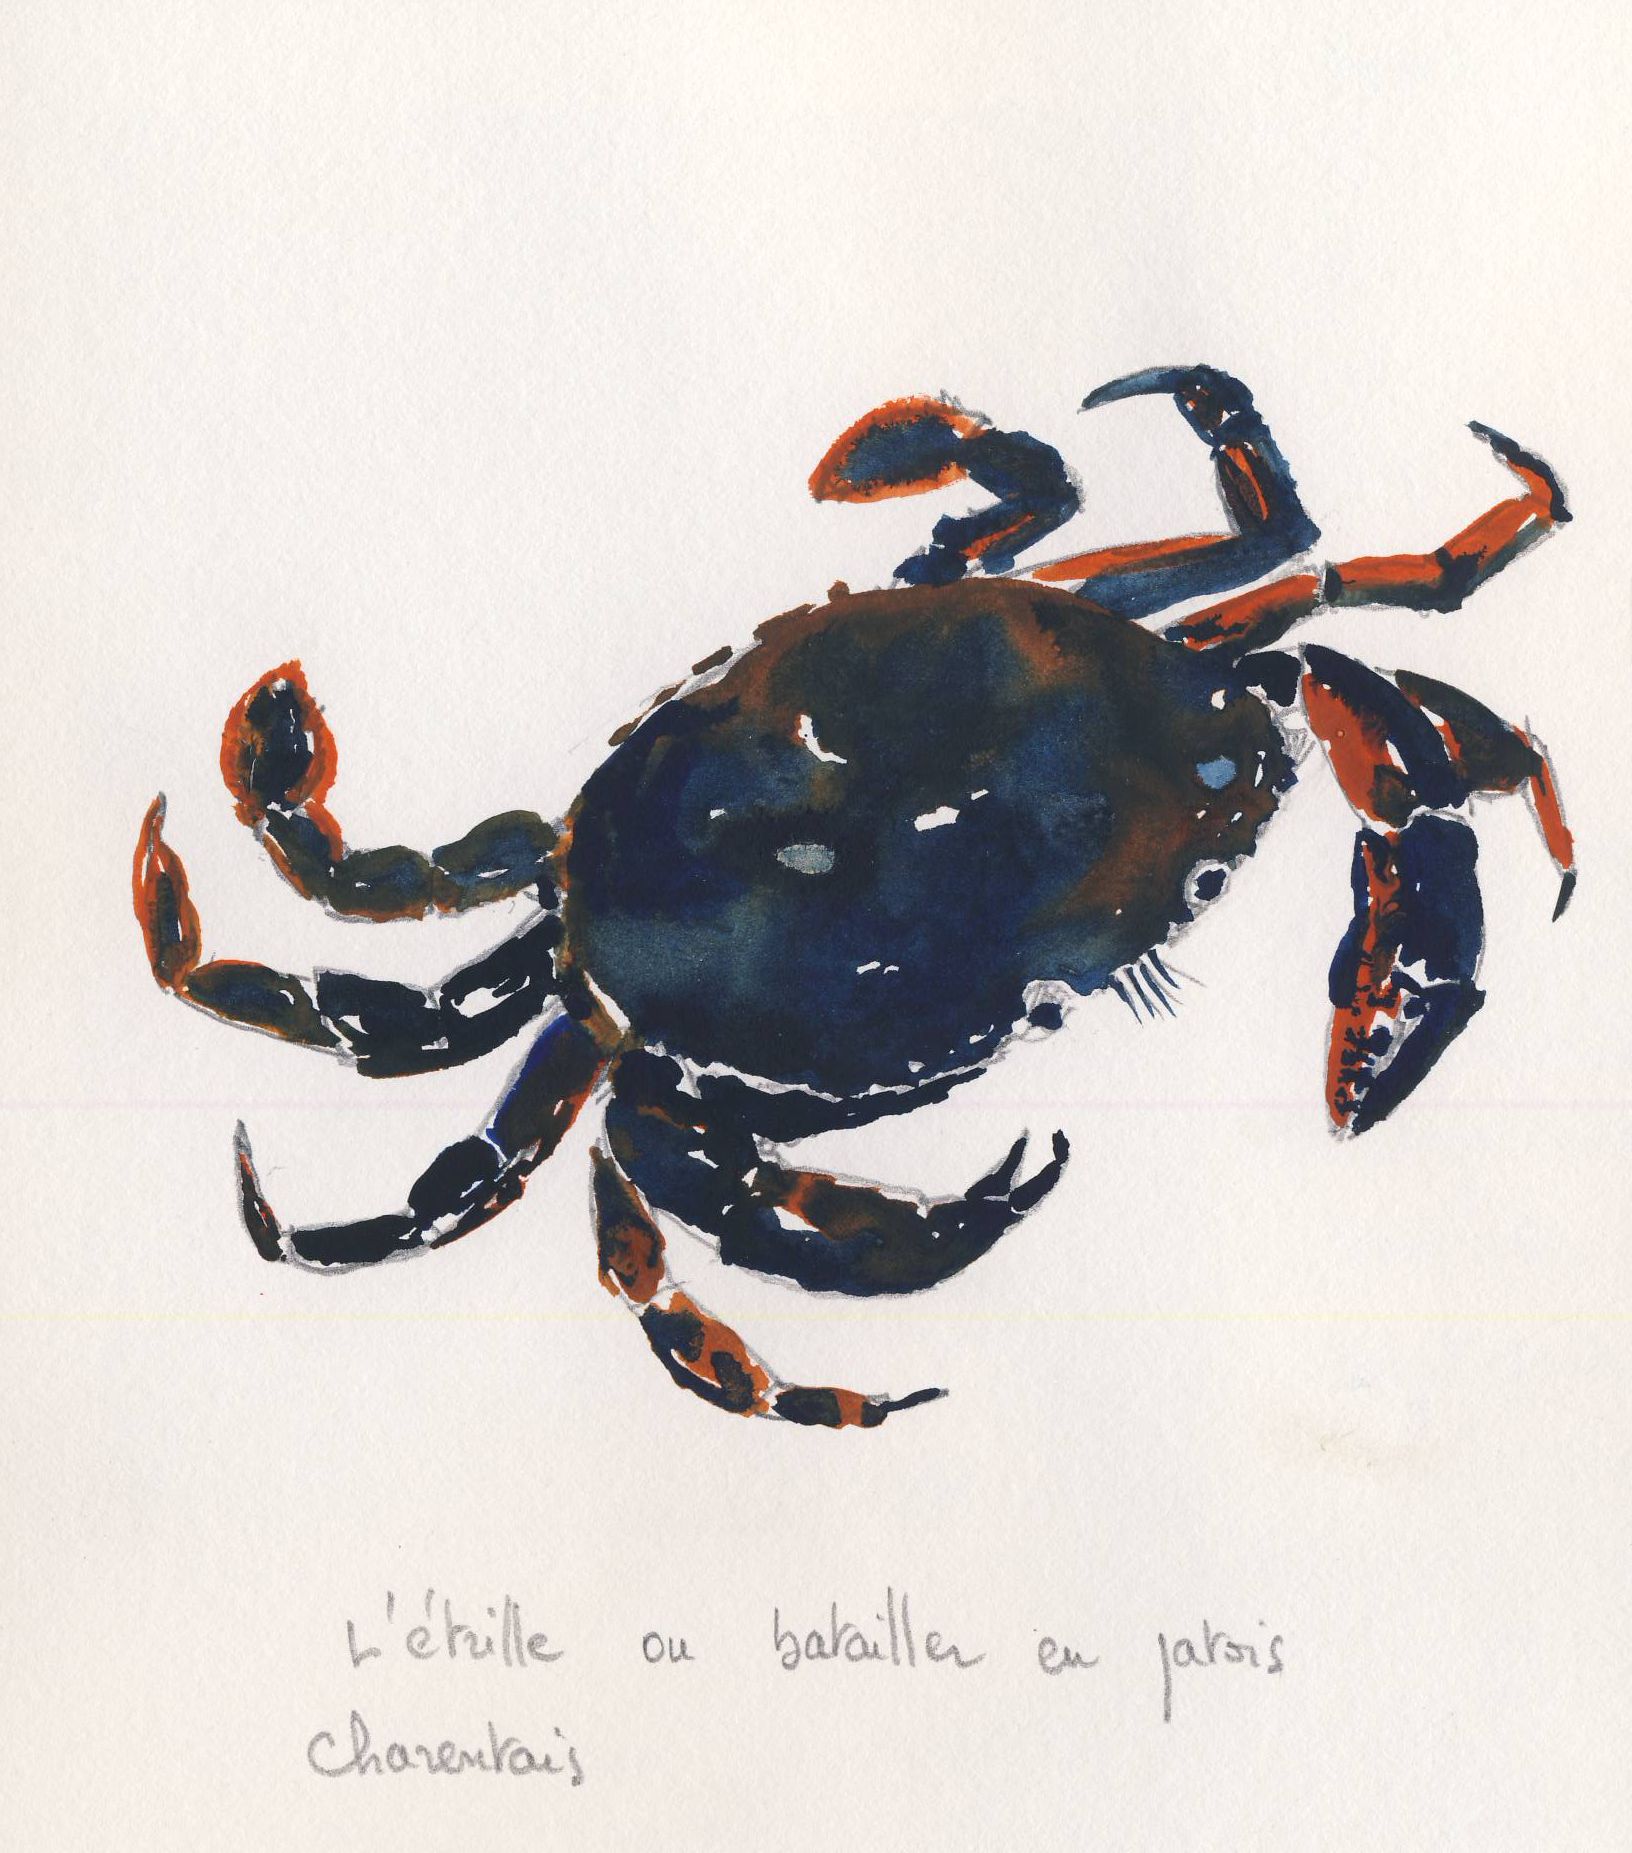 L'étrille ou batailler en patois
Charentais